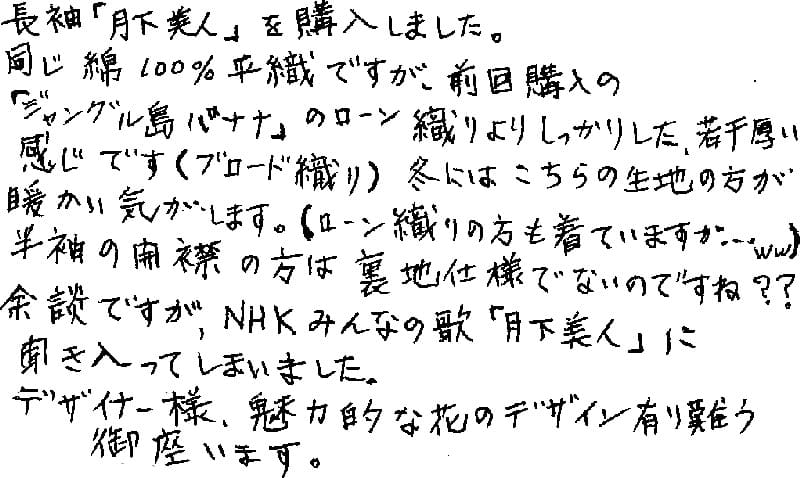 長袖「月下美人」を購入しました。
同じ綿100%平織ですが、前回購入の
「ジャングル島バナナ」のローン織りよりしっかりした、若干厚い
感じです(ブロード織り)冬にはこちらの生地の方が
暖かい気がします。(ローン織りの方も着ていますが…ww)
半袖の開襟の方は裏地仕様でないのですね??
余談ですが、NHKみんなの歌「月下美人」に
聞き入ってしまいました。
デザイナー様、魅力的な花のデザイン有り難う
御座います。